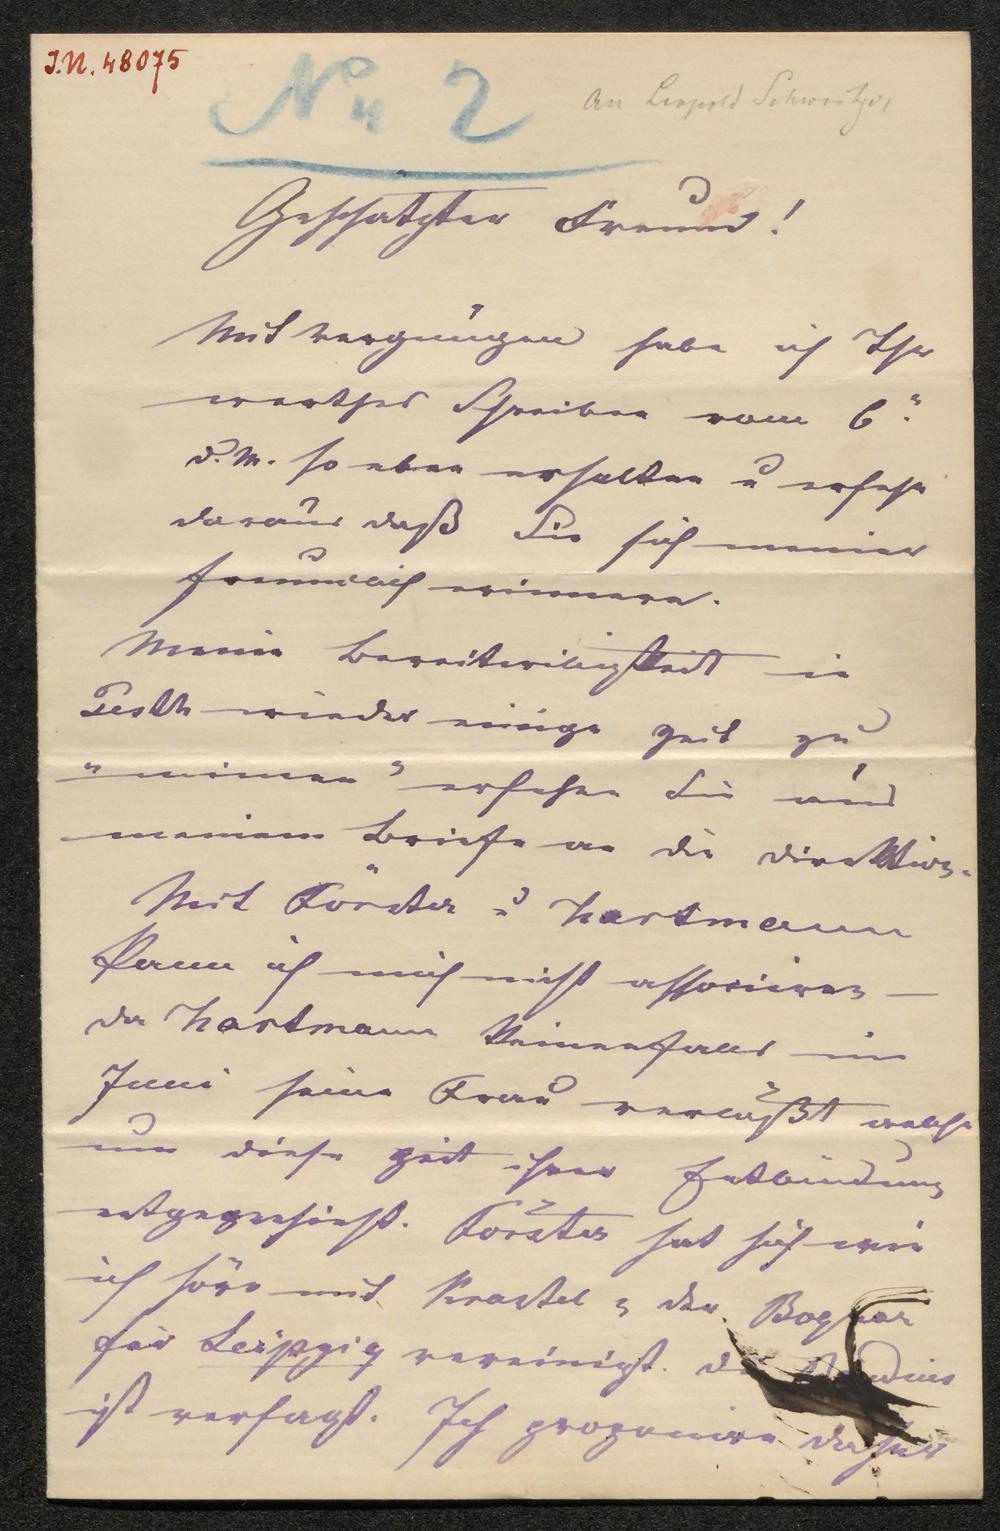 I.N. 48075
No 2
An Leopold Schweitzer
Geschätzter Freund!
Mit Vergnügen habe ich Ihr
werthes Schreiben vom 6"
d. M. so eben erhalten u ersehe
daraus daß Sie sich meiner
freundlich erinnern.
Meine Bereitwilligkeit in
Pesth wieder einige Zeit zu
"mimen" ersehen Sie aus
meinem Briefe an die Direktion.
Mit Förster u Hartmann
kann ich mich nicht associiren —
da Hartmann keinenfalls im
Juni seine Frau verläßt welche
um diese Zeit ihrer Entbindung
entgegensieht. Förster hat sich wie
ich höre mit Krastel u der Bognar
für Leipzig vereinigt. Die
ist versagt. Ich proponire daher